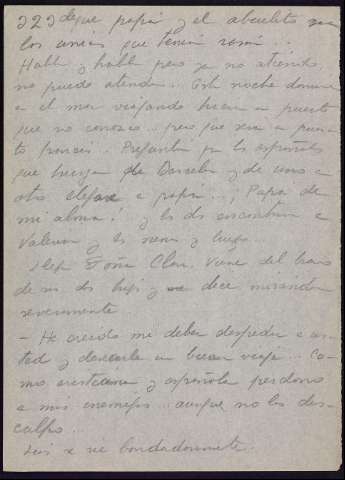 323 de que papá y el abuelito son
los únicos que tenían razón...
Habla y habla pero ya no atiendo,
no puedo atender... Esta noche dormiré
en el mar viajando hacia un puerto
que no conozco... pero que sea un puer-
to francés. Preguntan por los españoles
que huyen de Barcelona y de unos a
otros elefante a papá... ¡Papá de
mi alma! y los dos encontrar en
Valencia y los veré y luego...
Llega Doña Clara. Viene del brazo
de sus dos hijas y me dice mirándome
severamente
- He creído mi deber despedir a us-
ted y desearle un buen viaje... Co-
mo cristiana y española perdono
a mis enemigos... aunque no los dis-
culpo...
Luis se ríe bondadosamente.